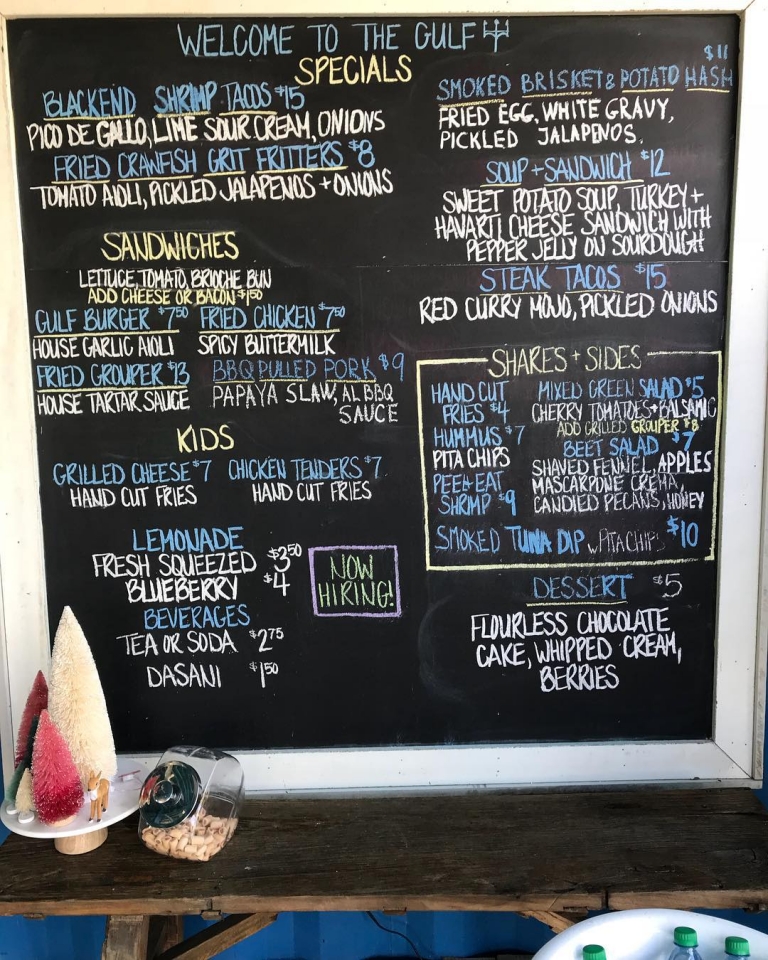 WELCOME TO THE GULF
SPECIALS
BLACKEND SHRIMP TACOS $15
PICO DE GALLO, LIME SOUR CREAM, ONIONS
FRIED CRAWFISH GRIT FRITTERS $8
TOMATO AIOLI, PICKLED JALAPENOS + ONIONS
$11
SMOKED BRISKET & POTATO HASH
FRIED EGG, WHITE GRAVY,
PICKLED JALAPENOS.
SOUP + SANDWICH $12
SWEET POTATO SOUP, TURKEY +
HAVARTI CHEESE SANDWICH WITH
PEPPER JELLY ON SOURDOUGH
STEAK TACOS $15
RED CURRY MOJO, PICKLED ONIONS
SANDWICHES
LETTUCE, TOMATO, BRIOCHE BUN
ADD CHEESE OR BACON $1.50
GULF BURGER $7.50
HOUSE GARLIC AIOLI
FRIED CHICKEN $7.50
SPICY BUTTERMILK
FRIED GROUPER $13
HOUSE TARTAR SAUCE
BBQ PULLED PORK $9
PAPAYA SLAW, AL BBQ
SAUCE
KIDS
GRILLED CHEESE $7
HAND CUT FRIES
CHICKEN TENDERS $7
HAND CUT FRIES
SHARES + SIDES
HAND CUT
FRIES $4
HUMMUS $7
PITA CHIPS
PEEL+EAT
SHRIMP $9
MIXED GREEN SALAD $5
CHERRY TOMATOES + BALSAMIC
ADD GRILLED GROUPER $8
BEET SALAD $7
SHAVED FENNEL, APPLES
MASCARPONE CREMA,
CANDIED PECANS, HONEY
SMOKED TUNA DIP w/ PITA CHIPS $10
LEMONADE
FRESH SQUEEZED $3.50
BLUEBERRY $4
BEVERAGES
TEA OR SODA $2.75
DASANI $1.50
NOW
HIRING!
DESSERT $5
FLOURLESS CHOCOLATE
CAKE, WHIPPED CREAM,
BERRIES